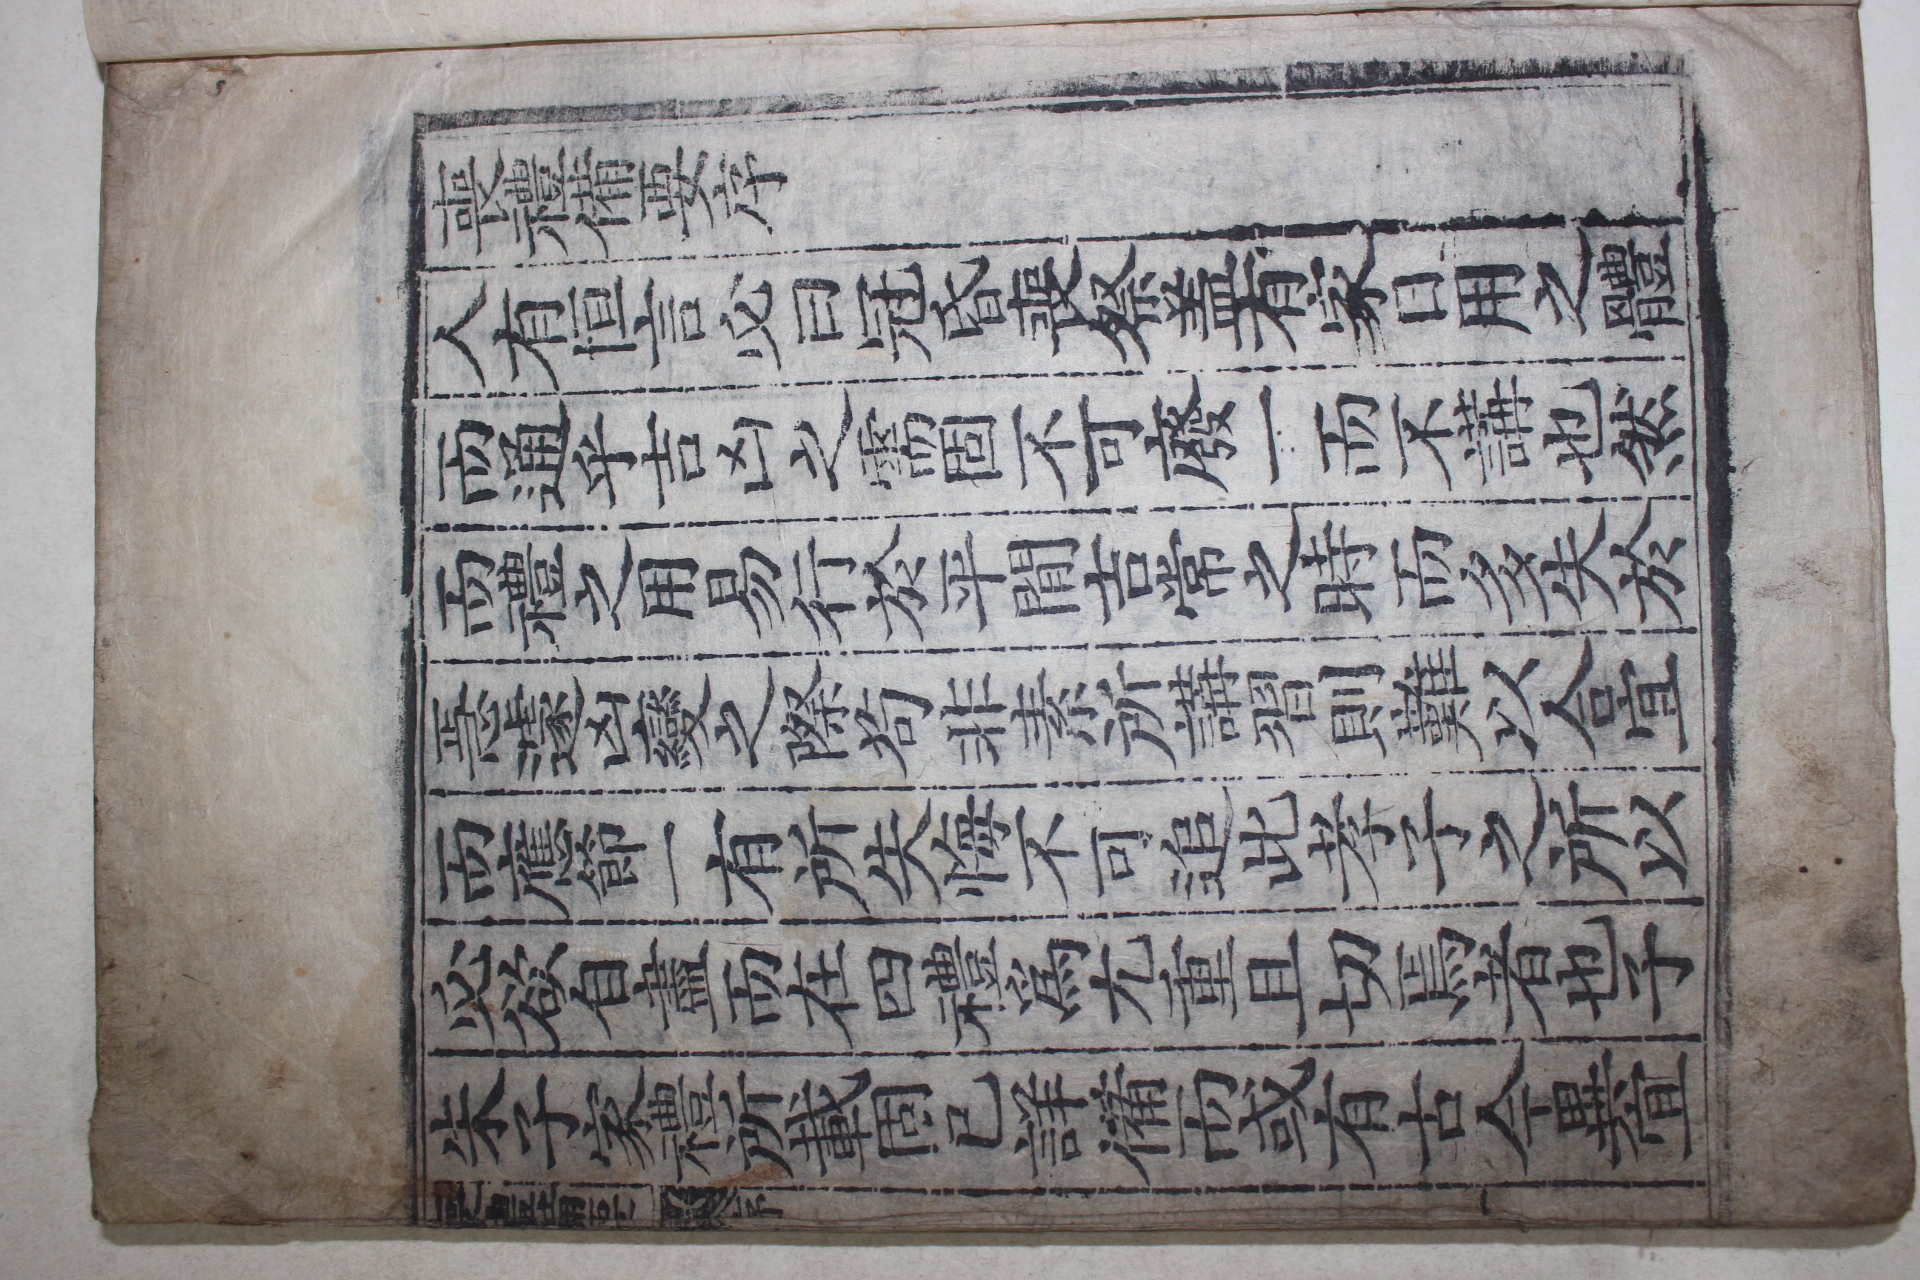 喪禮備要序
人有恒言必曰冠昏喪祭盖有家日用之體
而通乎吉凶之需固不可廢一而不講也然
而禮之用易行於平間吉常之時而多失於
急遽凶變之際苟非素所講習則難以合宜
而應節一有所失悔不可追此孝子之所以
必欲自盡而在四禮爲尤重且切焉者也子
朱子家禮所載固已詳備而或有古今異宜